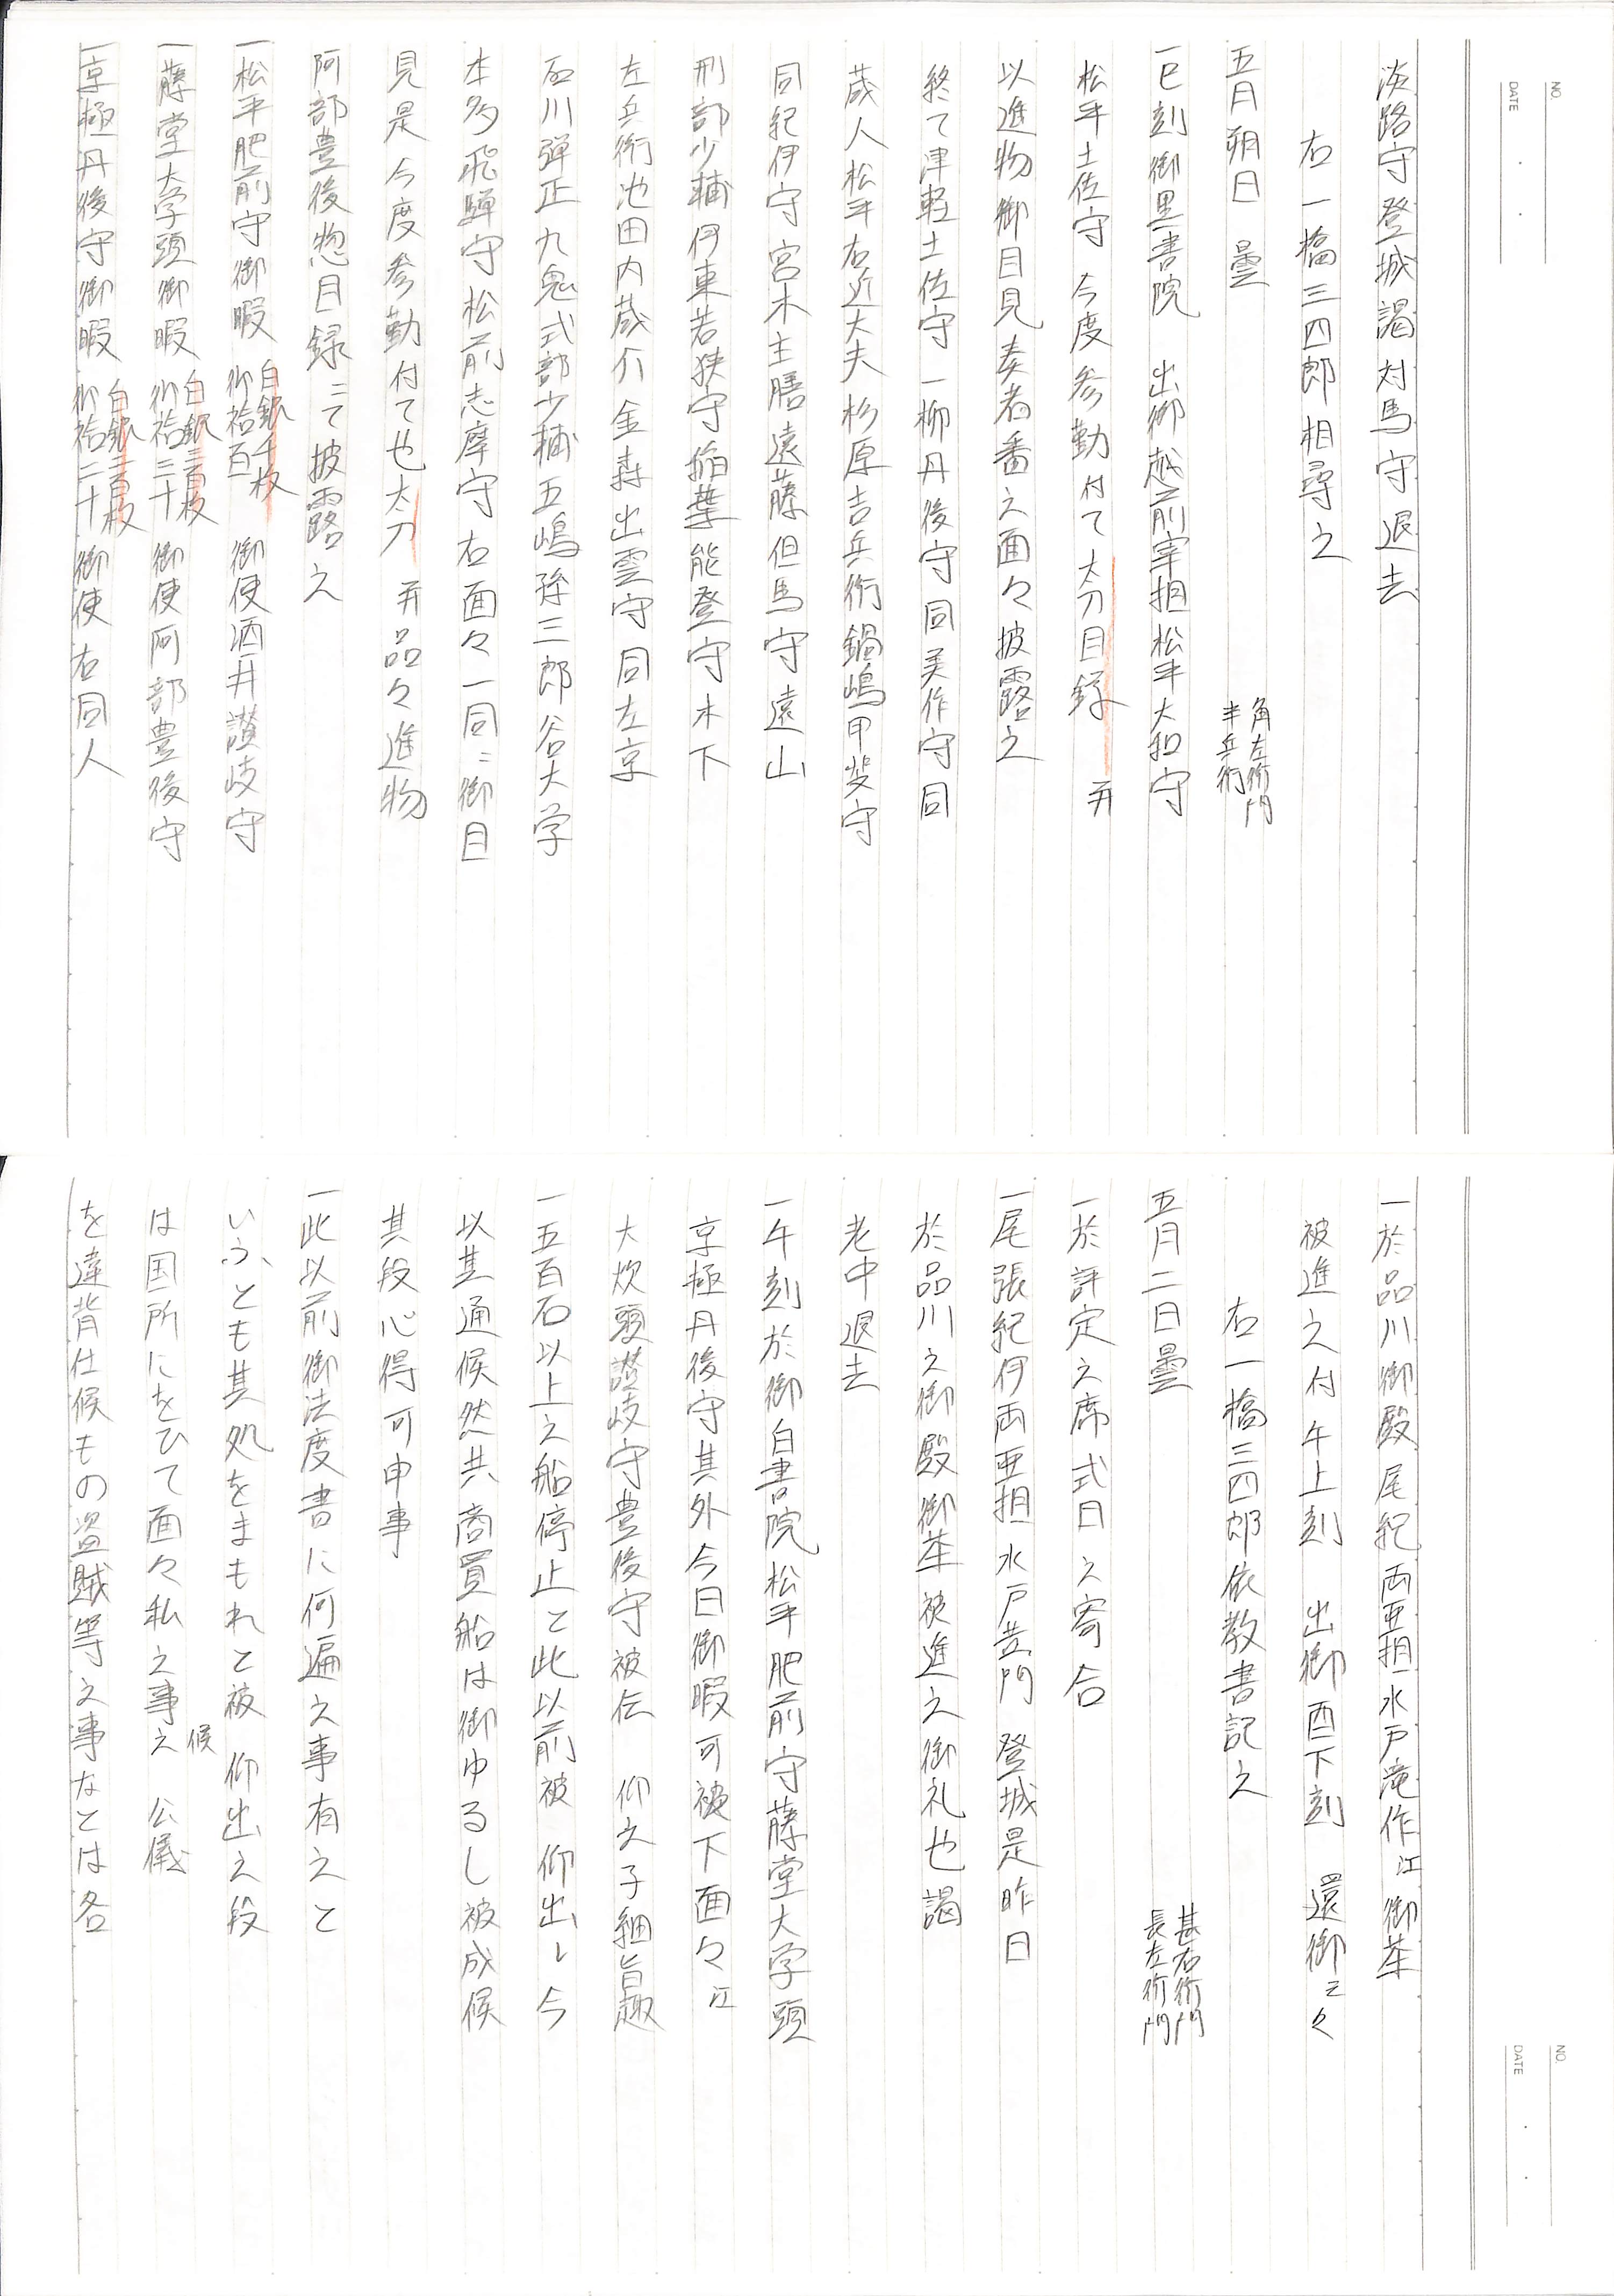 NO.
DATE
淡路守登城謁対馬守退去
右一橋三四郎相尋之
五月朔日 曇 角左衛門
半兵衛
一巳刻御黒書院 出御越前宰相松平大和守
松平土佐守 今度参勤付て太刀目録 并
以進物御目見奏者番之面々披露之
終て津軽土佐守一柳丹後守同美作守同
蔵人松平右近大夫杉原吉兵衛鍋嶋甲斐守
同紀伊守宮木主膳遠藤但馬守遠山
刑部少輔伊東若狭守稲葉能登守木下
左兵衛池田内蔵介金森出雲守同左京
石川弾正九鬼式部少輔五嶋孫三郎谷大学
本多飛騨守松前志摩守右面々一同ニ御目
見是今度参勤付て也太刀 并品々進物
阿部豊後惣目録ニて披露之
一松平肥前守御暇 白銀千枚 御袷百 御使酒井讃岐守
一藤堂大学頭御暇 白銀三百枚 御袷三十 御使阿部豊後守
一京極丹後守御暇 白銀二百枚 御袷二十 御使右同人
NO.
DATE
一於品川御殿尾紀両亜相水戸滝作江御茶
被進之付午上刻 出御酉下刻 還御云々
右一橋三四郎依教書記之
五月二日曇 甚右衛門
長左衛門
一於評定之席式日之寄合
一尾張紀伊両亜相水戸黄門 登城是昨日
於品川之御殿御茶被進之御礼也謁
老中退去
一午刻於御白書院松平肥前守藤堂大学頭
京極丹後守其外今日御暇可被下面々江
大炊頭讃岐守豊後守被伝 仰之子細旨趣
一五百石以上之船停止と此以前被 仰出し今
以其通候然共商買船は御ゆるし被成候
其段心得可申事
一此以前御法度書に何遍之事有之と
いふとも其処をまもれと被 仰出之段
は国所にをひて面々私之事之候 公儀
を違背仕候もの盗賊等之事なとは各